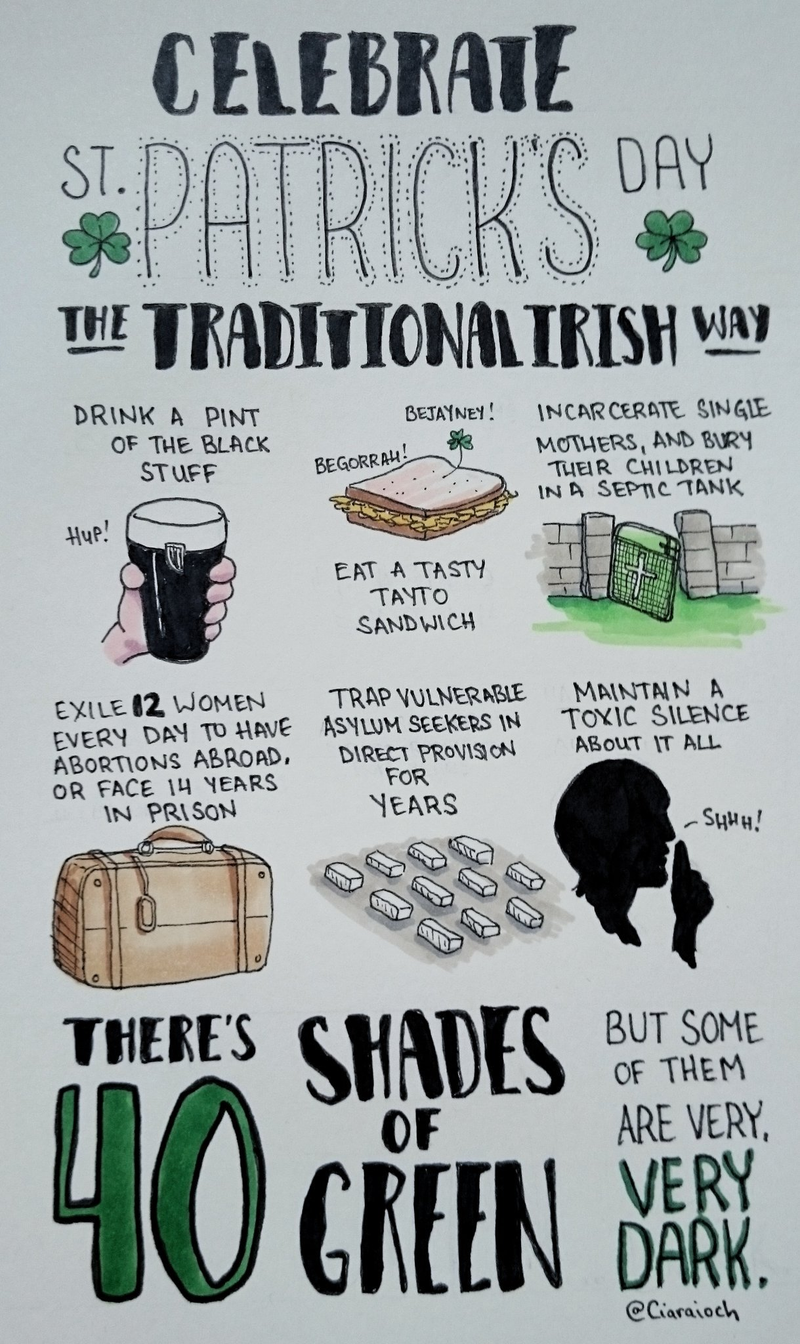 CELEBRATE
ST. PATRICK'S DAY
THE TRADITIONAL IRISH WAY
DRINK A PINT
OF THE BLACK
STUFF
HUP!
BEJAYNEY!
BEGORRAH!
EAT A TASTY
TAYTO
SANDWICH
INCARCERATE SINGLE
MOTHERS, AND BURY
THEIR CHILDREN
IN A SEPTIC TANK
EXILE 12 WOMEN
EVERY DAY TO HAVE
ABORTIONS ABROAD,
OR FACE 14 YEARS
IN PRISON
TRAP VULNERABLE
ASYLUM SEEKERS IN
DIRECT PROVISION
FOR
YEARS
MAINTAIN A
TOXIC SILENCE
ABOUT IT ALL
SHHH!
THERE'S
40
SHADES
OF
GREEN
BUT SOME
OF THEM
ARE VERY,
VERY
DARK.
@Ciaraioch